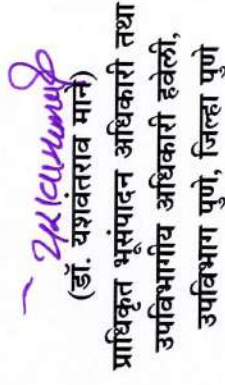 (डॉ. यशवंतराव माने)
प्राधिकृत भूसंपादन अधिकारी तथा
उपविभागीय अधिकारी हवेली,
उपविभाग पुणे, जिल्हा पुणे